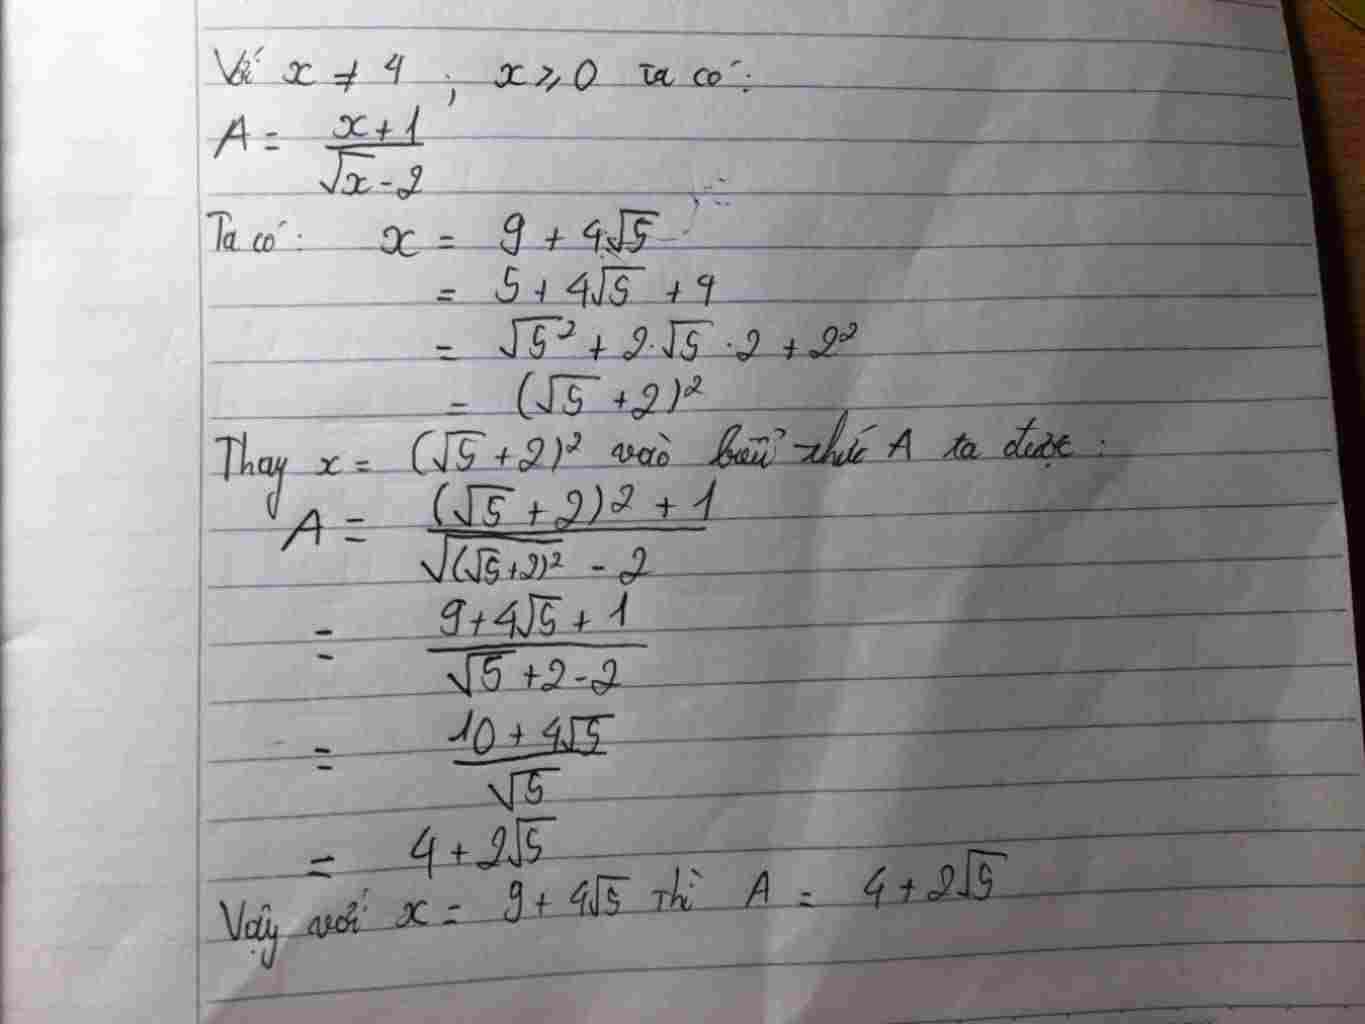 Với x ≠ 4 ; x ≥ 0 ta có:
A = (x+1)/(√x - 2)
Ta có: x = 9 + 4√5
= 5 + 4√5 + 4
= √5² + 2·√5 · 2 + 2²
= (√5 + 2)²
Thay x = (√5 + 2)² vào biểu thức A ta được:
A = ((√5 + 2)2 + 1)/(√((√5+2)²) - 2)
= (9 + 4√5 + 1)/(√5 + 2 - 2)
= (10 + 4√5)/√5
= 4 + 2√5
Vậy với x = 9 + 4√5 thì A = 4 + 2√5